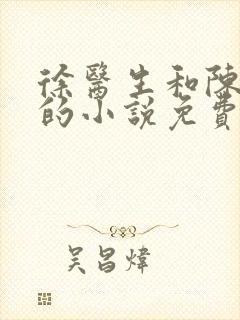 徐醫生和陳
的小說免費
吳昌煒